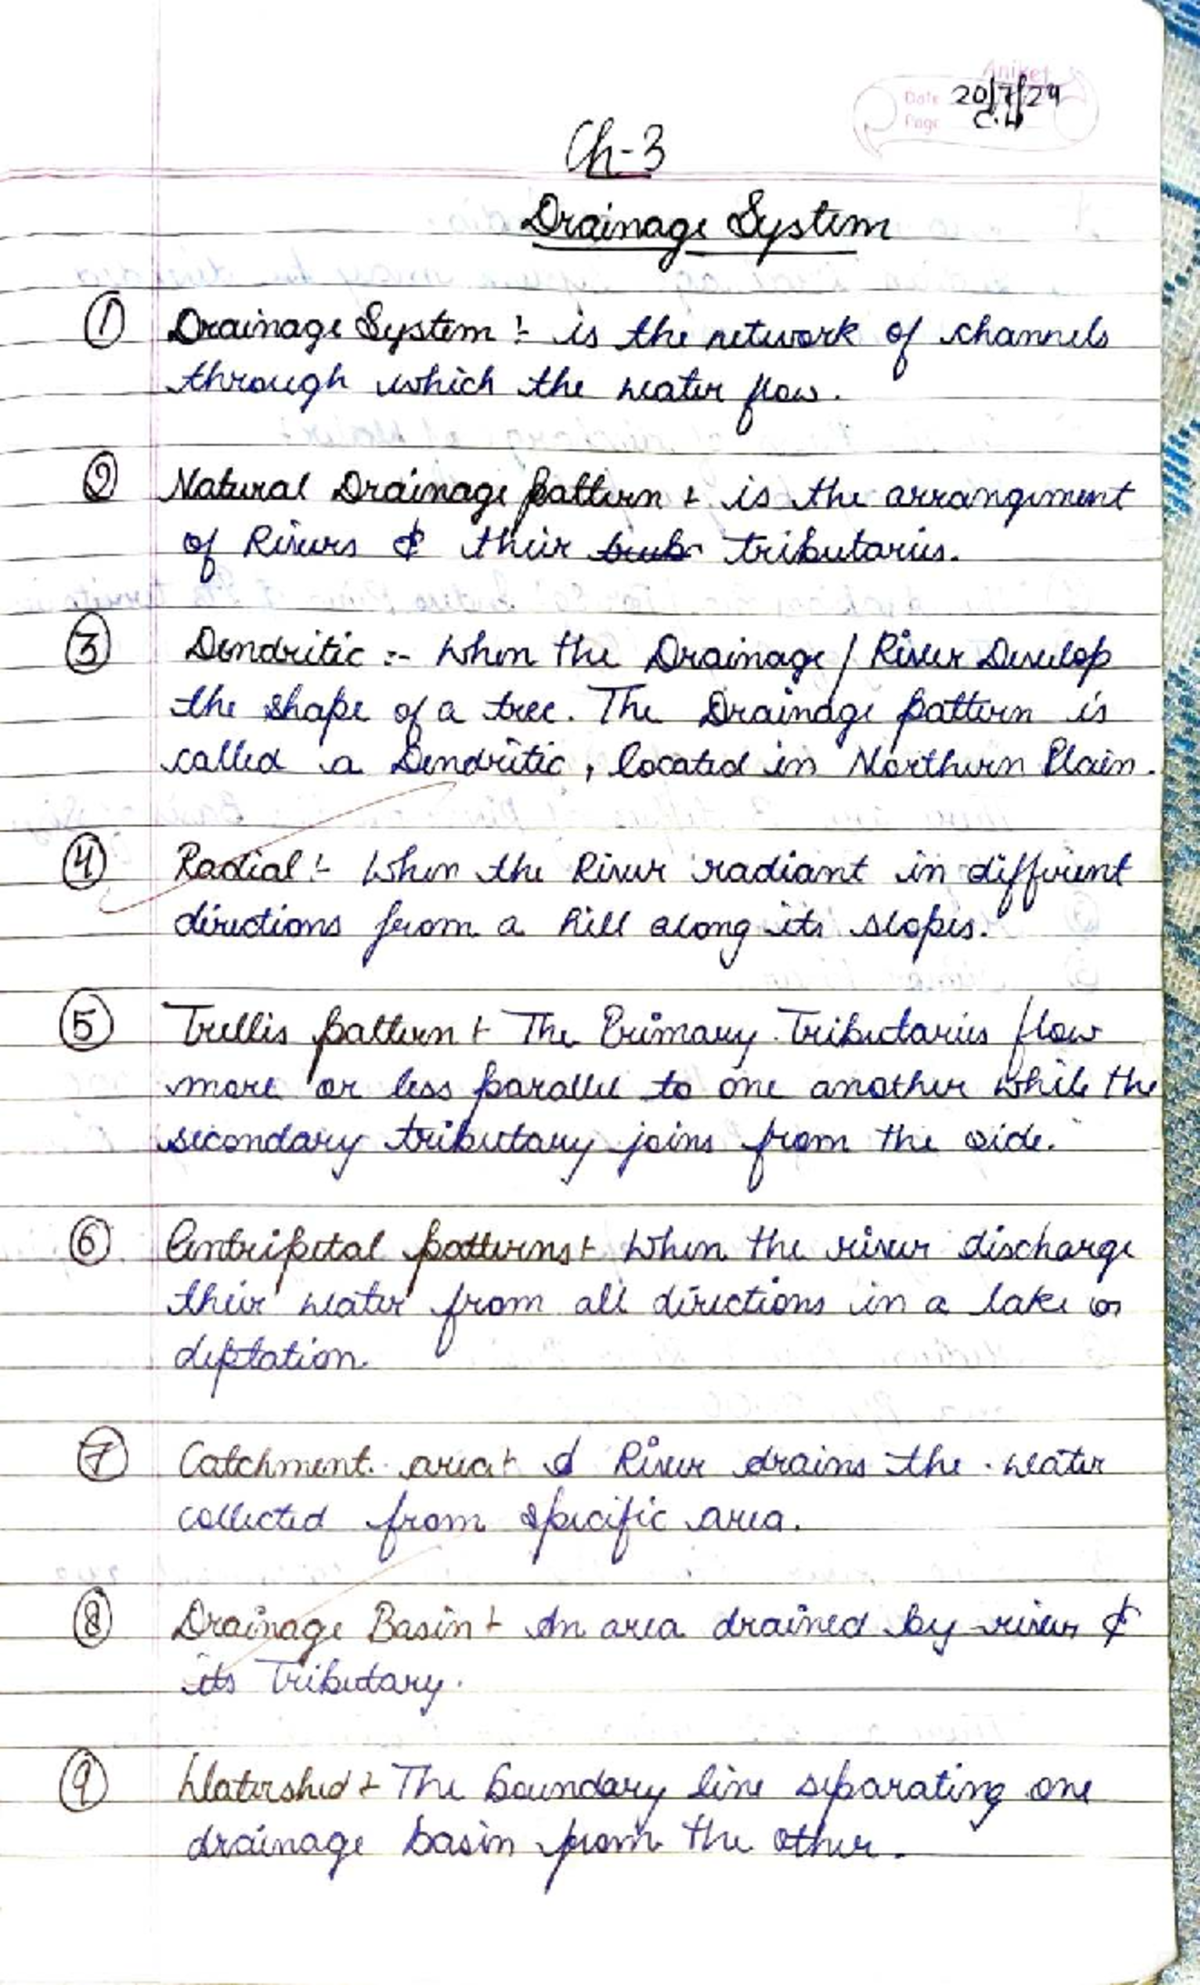 Aniket
Date 20/7/24
Page C.W
Ch-3
Drainage System
① Drainage System :- is the network of channels
through which the water flow.
② Natural Drainage pattern :- is the arrangement
of Rivers & their tributaries.
③ Dendritic :- When the Drainage / River Develop
the shape of a tree. The Drainage pattern is
called a Dendritic, located in Northern Plain.
④ Radial :- When the River radiant in different
directions from a hill along its slopes.
⑤ Trellis pattern :- The Primary Tributaries flow
more or less parallel to one another while the
secondary tributary joins from the side.
⑥ Centripetal patterns :- When the river discharge
their water from all directions in a lake or
deptation.
⑦ Catchment area :- A River drains the water
collected from specific area.
⑧ Drainage Basin :- An area drained by river &
its Tributary.
⑨ Watershed :- The boundary line separating one
drainage basin from the other.